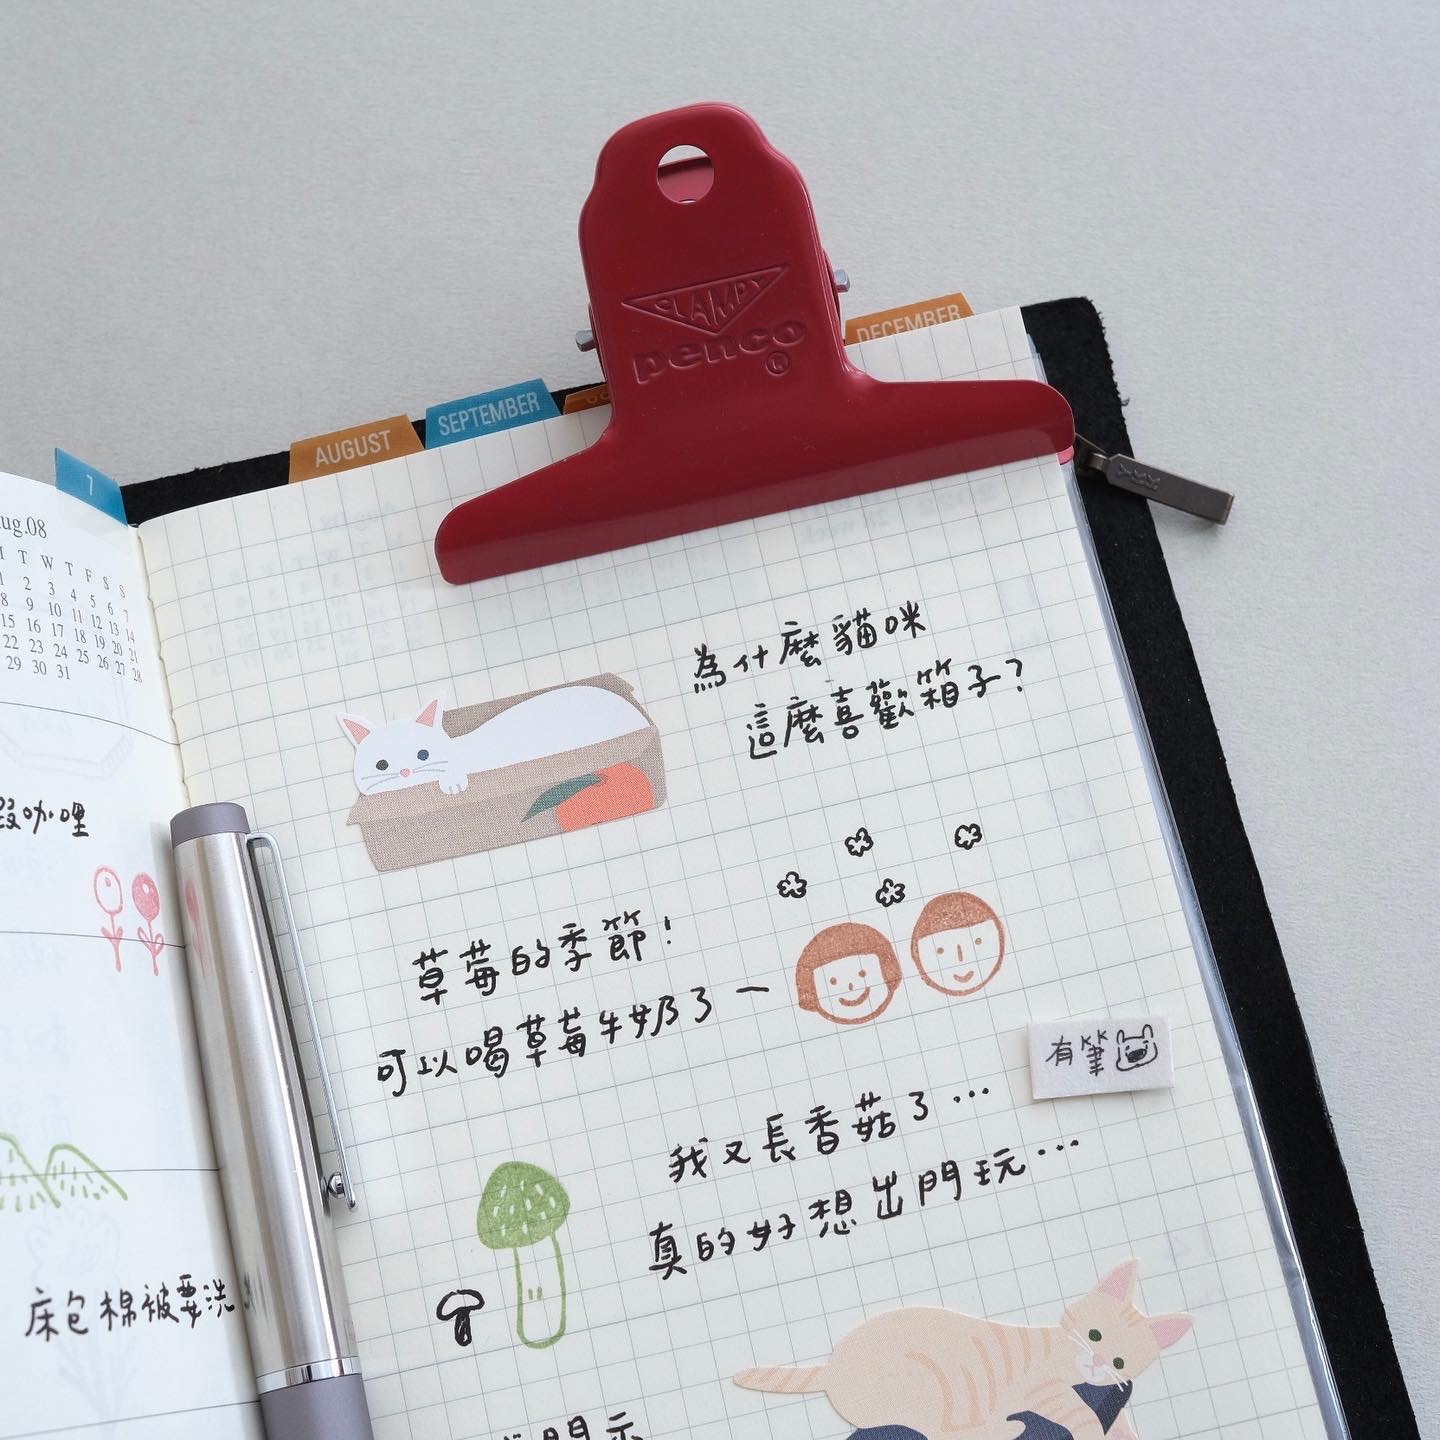 CLAMPY
penco
®
DECEMBER
SEPTEMBER
AUGUST
7
ug.08
T W T F S S
1 2 3 4 5 6 7
8 9 10 11 12 13 14
15 16 17 18 19 20 21
22 23 24 25 26 27 28
29 30 31
YKK
為什麼貓咪
這麼喜歡箱子?
咖哩
草莓的季節!
可以喝草莓牛奶了~
有筆
我又長香菇了…
真的好想出門玩…
床包棉被要洗